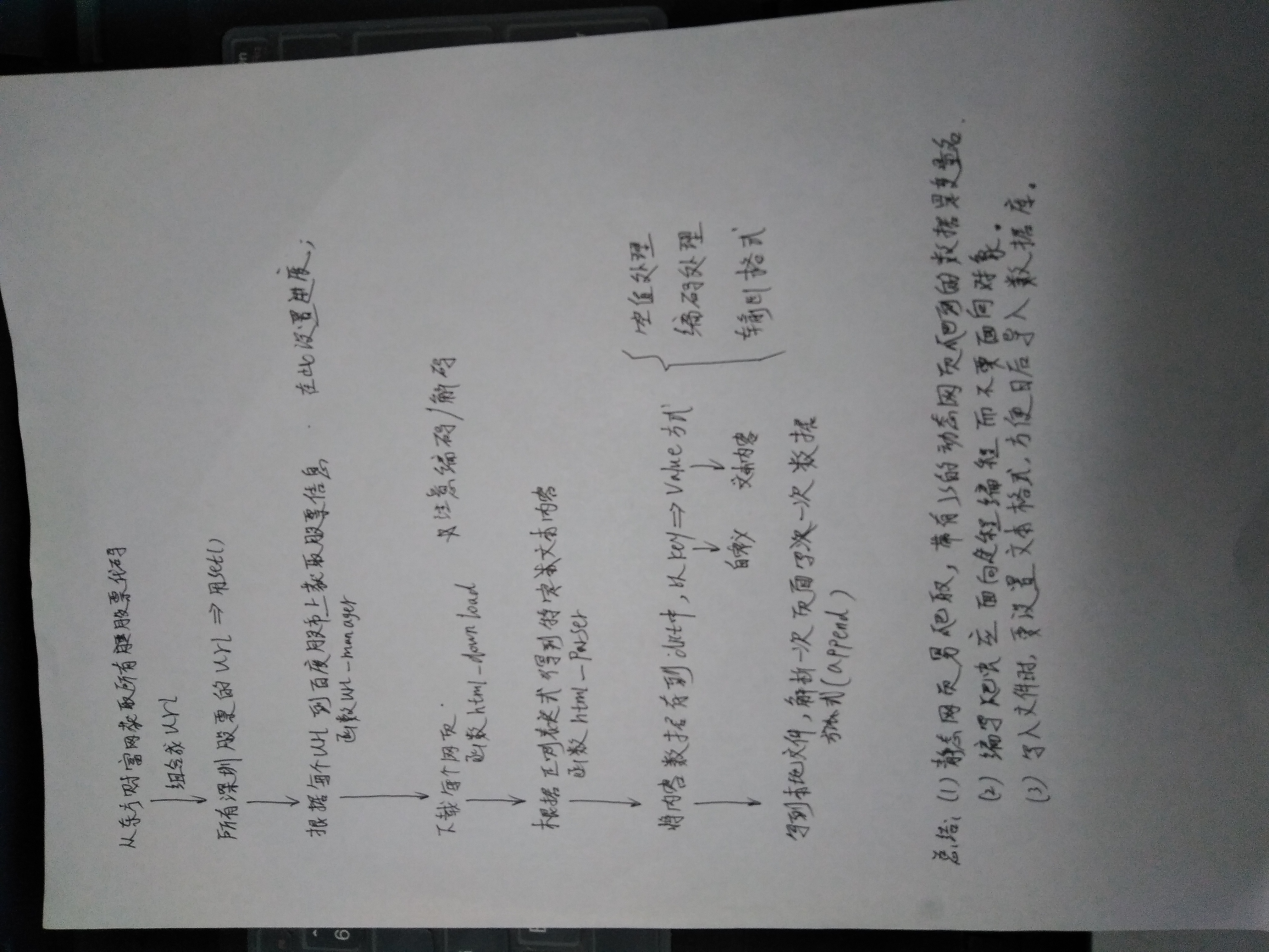 从东方财富网获取所有股票代码
组合成url
所有深圳股票的url ⇒ 用set()
根据每个url到百度股市上获取股票信息 . 在此设置进度;
函数url-manager
下载每个网页. 注意编码/解码
函数html-download
根据正则表达式得到特定文本内容
函数html-Parser
将内容数据存到dict中,以key ⇒ value方式
自定义 文本内容
空值处理
编码处理
输出格式
写到本地文件,解析一次页面写一次数据
方式(append)
总结:(1) 静态网页易爬取,带有JS的动态网页爬到的数据是变量名.
(2) 编写爬虫应面向过程编程而不要面向对象。
(3) 写入文件时,要设置文本格式,方便日后导入数据库。